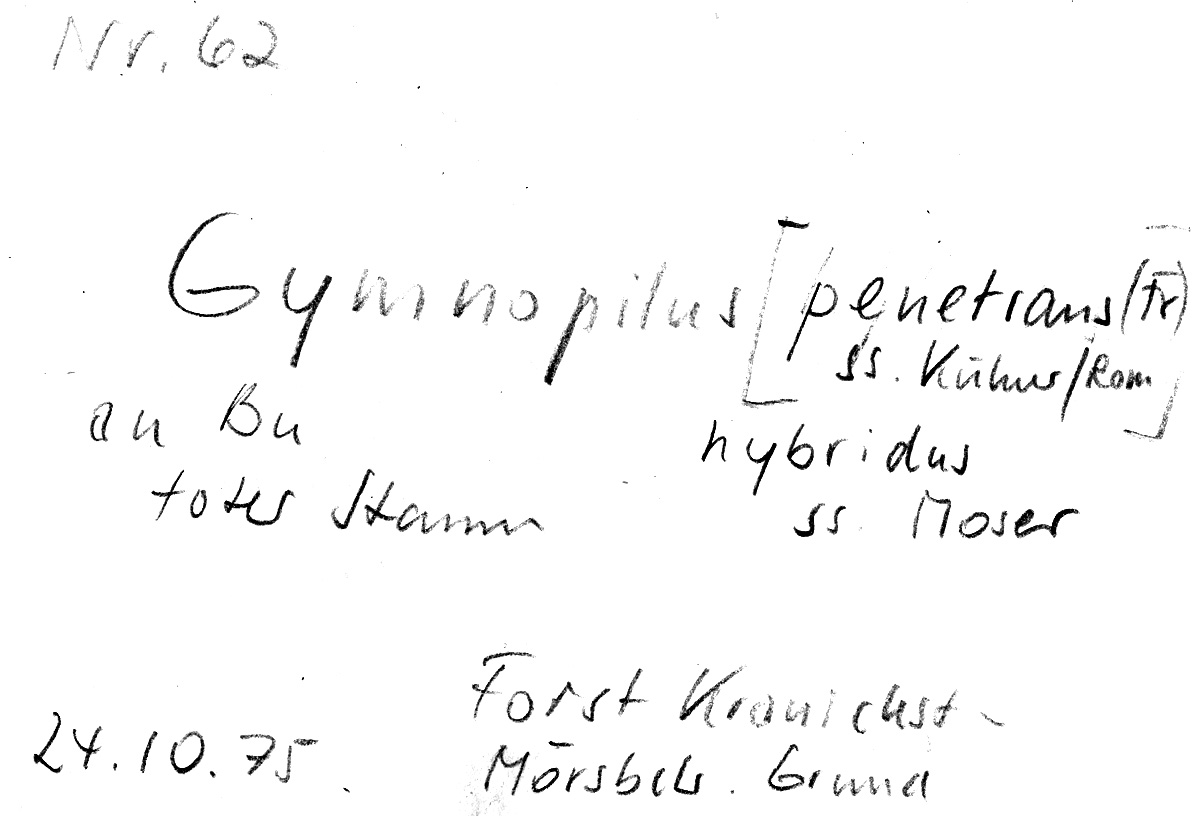 Nr. 62
Gymnopilus [penetrans (Fr)
ss. Kühner/Rom]
an Bu
hybridus
totes Stamm
ss. Moser
Forst Kranichst-
24.10.75. Mörsbch. Grund